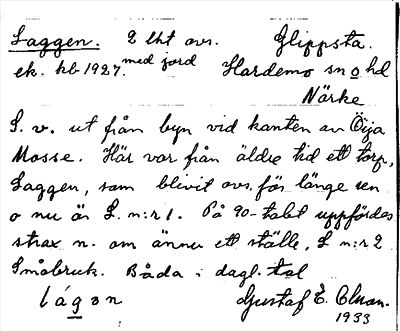 Laggen. 2 lht avs. Glippsta.
ek. kb 1927. med jord Hardemo sn o hd
Närke
S. v. ut från byn vid kanten av Öija
Mosse. Här var från äldre tid ett torp,
Laggen, som blivit avs. för länge sen
o nu är L. n:r 1. På 90-talet uppfördes
strax n. om ännu ett ställe, L n:r 2
Småbruk. Båda i dagl. tal
lágon Gustaf E. Olsson.
1933